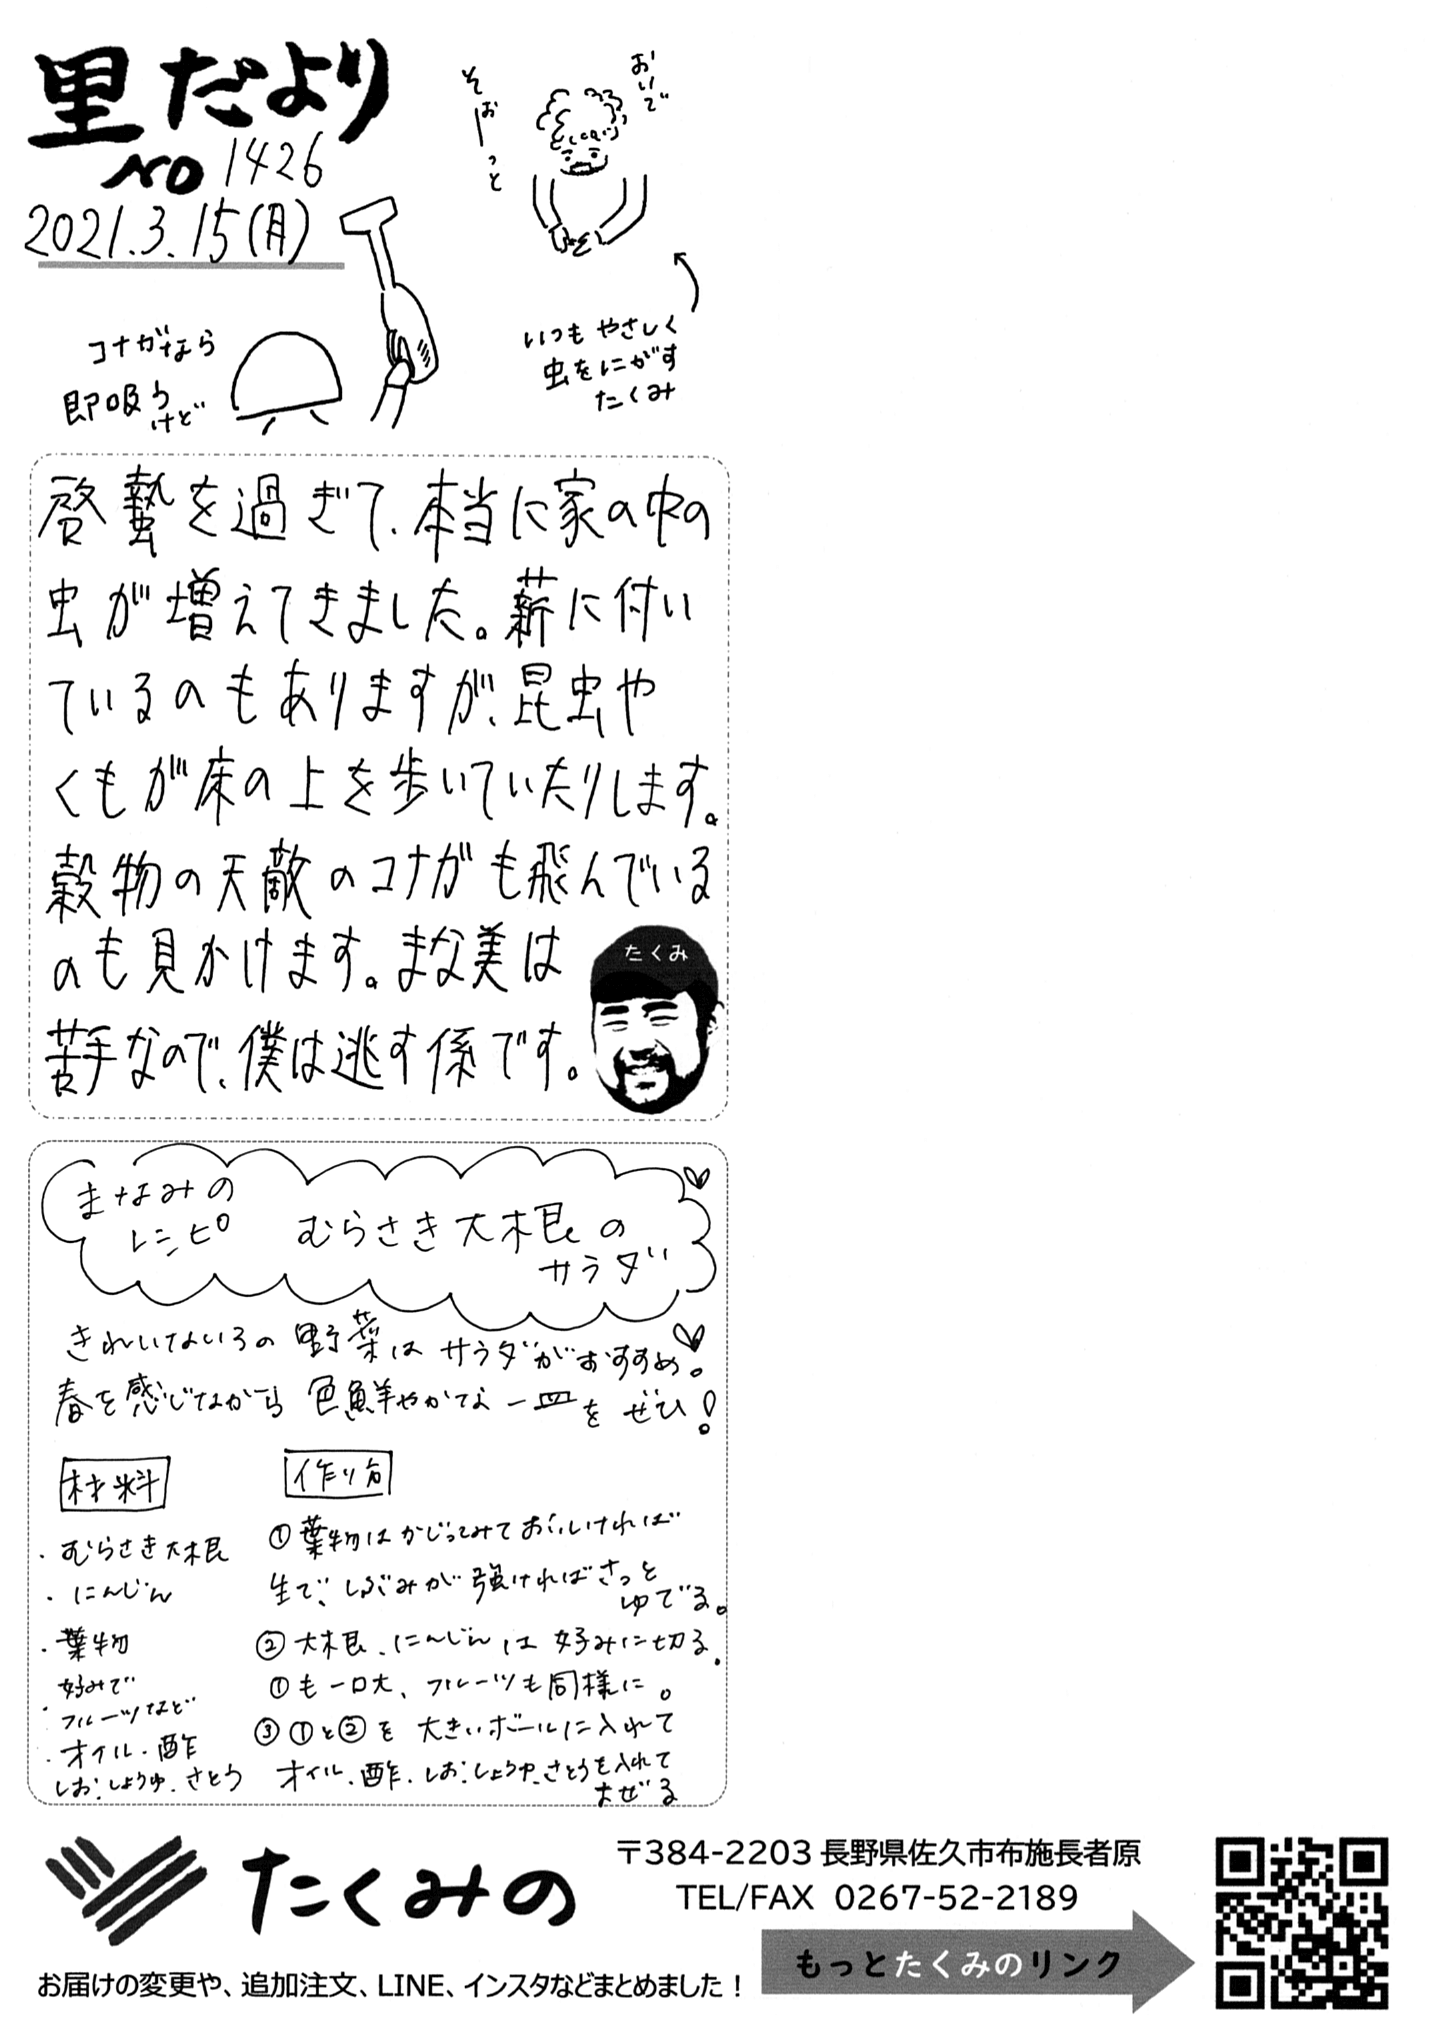 里だより
NO 1426
2021.3.15(月)
おいで
そぉーっと
コナガなら
即吸う
けど
いつもやさしく
虫をにがす
たくみ
啓蟄を過ぎて、本当に家の中の
虫が増えてきました。薪に付い
ているのもありますが、昆虫や
くもが床の上を歩いていたりします。
穀物の天敵のコナガも飛んでいる
のも見かけます。まな美は
苦手なので、僕は逃す係です。
たくみ
まなみの
レシピ
むらさき大根の
サラダ
きれいないろの野菜はサラダがおすすめ。
春を感じながら色鮮やかな一皿をぜひ!
材料
・むらさき大根
・にんじん
・葉物
・好みで
フルーツなど
・オイル・酢
しお・しょうゆ・さとう
作り方
①葉物はかじってみておいしければ
生で、しぶみが強ければさっと
ゆでる。
②大根、にんじんは好みに切る。
①も一口大、フルーツも同様に。
③①と②を大きいボールに入れて
オイル・酢・しお・しょうゆ・さとうを入れて
まぜる
たくみの
〒384-2203 長野県佐久市布施長者原
TEL/FAX 0267-52-2189
もっとたくみのリンク
お届けの変更や、追加注文、LINE、インスタなどまとめました!